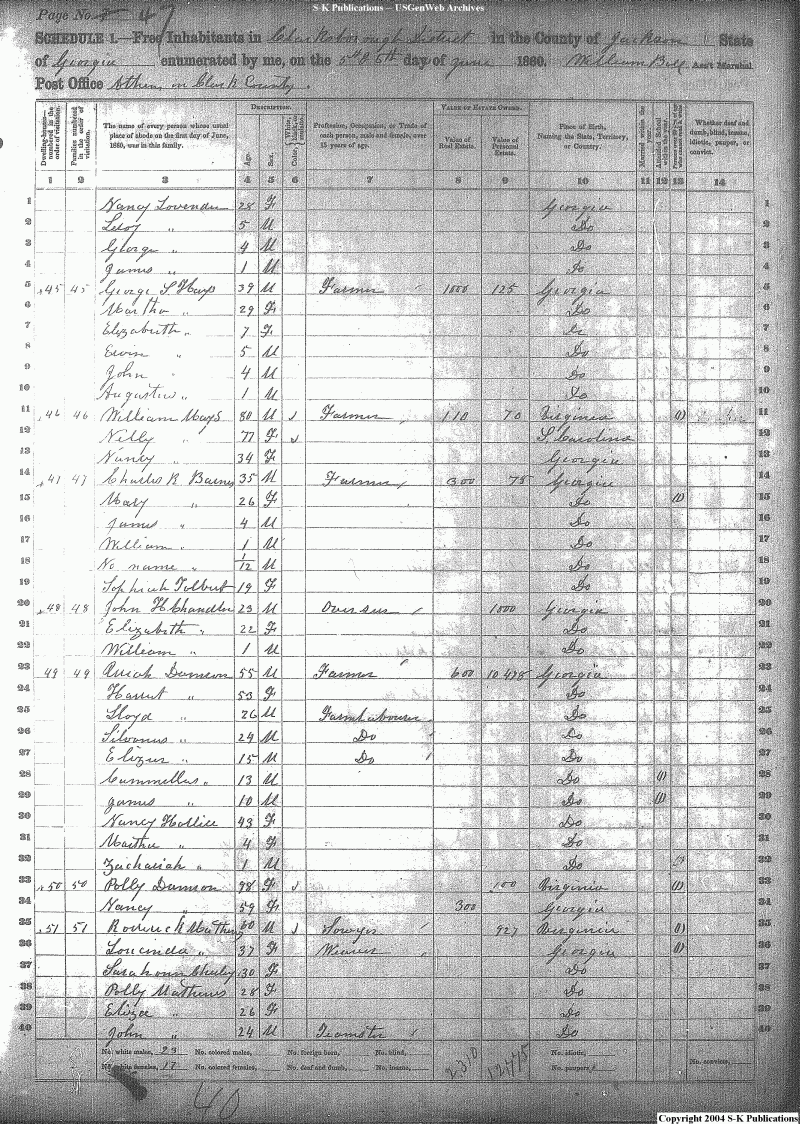 S-K Publications – USGenWeb Archives
Page No. 47
SCHEDULE 1.—Free Inhabitants in Clarksborough District in the County of Jackson State
of Georgia enumerated by me, on the 5th & 6th day of June 1860. William Bell Ass't Marshal
Post Office Athens in Clark County.
DESCRIPTION. VALUE OF ESTATE OWNED.
Dwelling-houses—numbered in the order of visitation. Families numbered in the order of visitation. The name of every person whose usual place of abode on the first day of June, 1860, was in this family. Age. Sex. Color, Profession, Occupation, or Trade of each person, male and female, over 15 years of age. Value of Real Estate. Value of Personal Estate. Place of Birth, Naming the State, Territory, or Country. Married within the year. Attended School within the year. Whether deaf and dumb, blind, insane, idiotic, pauper, or convict.
1 2 3 4 5 6 7 8 9 10 11 12 13 14
1 Nancy 28 F Georgia 1
2 Leroy " 5 M Do 2
3 George " 4 M Do 3
4 James " 1 M Do 4
5 45 45 George S Hays 39 M Farmer 1000 125 Georgia 5
6 Martha " 29 F Do 6
7 Elizabeth " 7 F Do 7
8 Ervin " 5 M Do 8
9 John " 4 M Do 9
10 Augustus " 1 M Do 10
11 46 46 William Mays 80 M Farmer 110 70 Virginia (1) 11
12 Nilly " 77 F S, Carolina 12
13 Nancy " 34 F Georgia 13
14 47 47 Charles R Barnes 35 M Farmer 300 75 Georgia 14
15 Mary " 26 F Do (1) 15
16 James " 4 M Do 16
17 William " 1 M Do 17
18 No name " 1/12 M Do 18
19 Sophiah Tolbert 19 F Do 19
20 48 48 John H Chandler 23 M Overseer 1000 Georgia 20
21 Elizabeth " 22 F Do 21
22 William " 1 M Do 22
23 49 49 55 M Farmer 600 10478 Georgia 23
24 Harriet " 53 F Do 24
25 Lloyd " 26 M Farm Labourer Do 25
26 Silvanus " 24 M Do Do 26
27 15 M Do Do 27
28 Cummellus " 13 M Do (1) 28
29 James " 10 M Do (1) 29
30 Nancy Hollice 43 F Do 30
31 Martha " 4 F Do 31
32 Zachariah " 1 M Do 32
33 50 50 Polly 98 F 100 Virginia (1) 33
34 Nancy " 59 F 300 Georgia 34
35 51 51 Roderick 60 M Sawyer 927 Virginia (1) 35
36 Loucinda " 37 F Weaver Georgia (1) 36
37 Sarah ann 30 F Do 37
38 Polly Mathews 28 F Do 38
39 Eliza " 26 F Do 39
40 John " 24 M Teamster Do 40
No. white males, 23 No. colored males, No. foreign born, No. blind, 2,310 12,775 No. idiotic, No. convicts,
No. white females, 17 No. colored females, No. deaf and dumb, No. insane, No. paupers,
40
Copyright 2004 S-K Publications